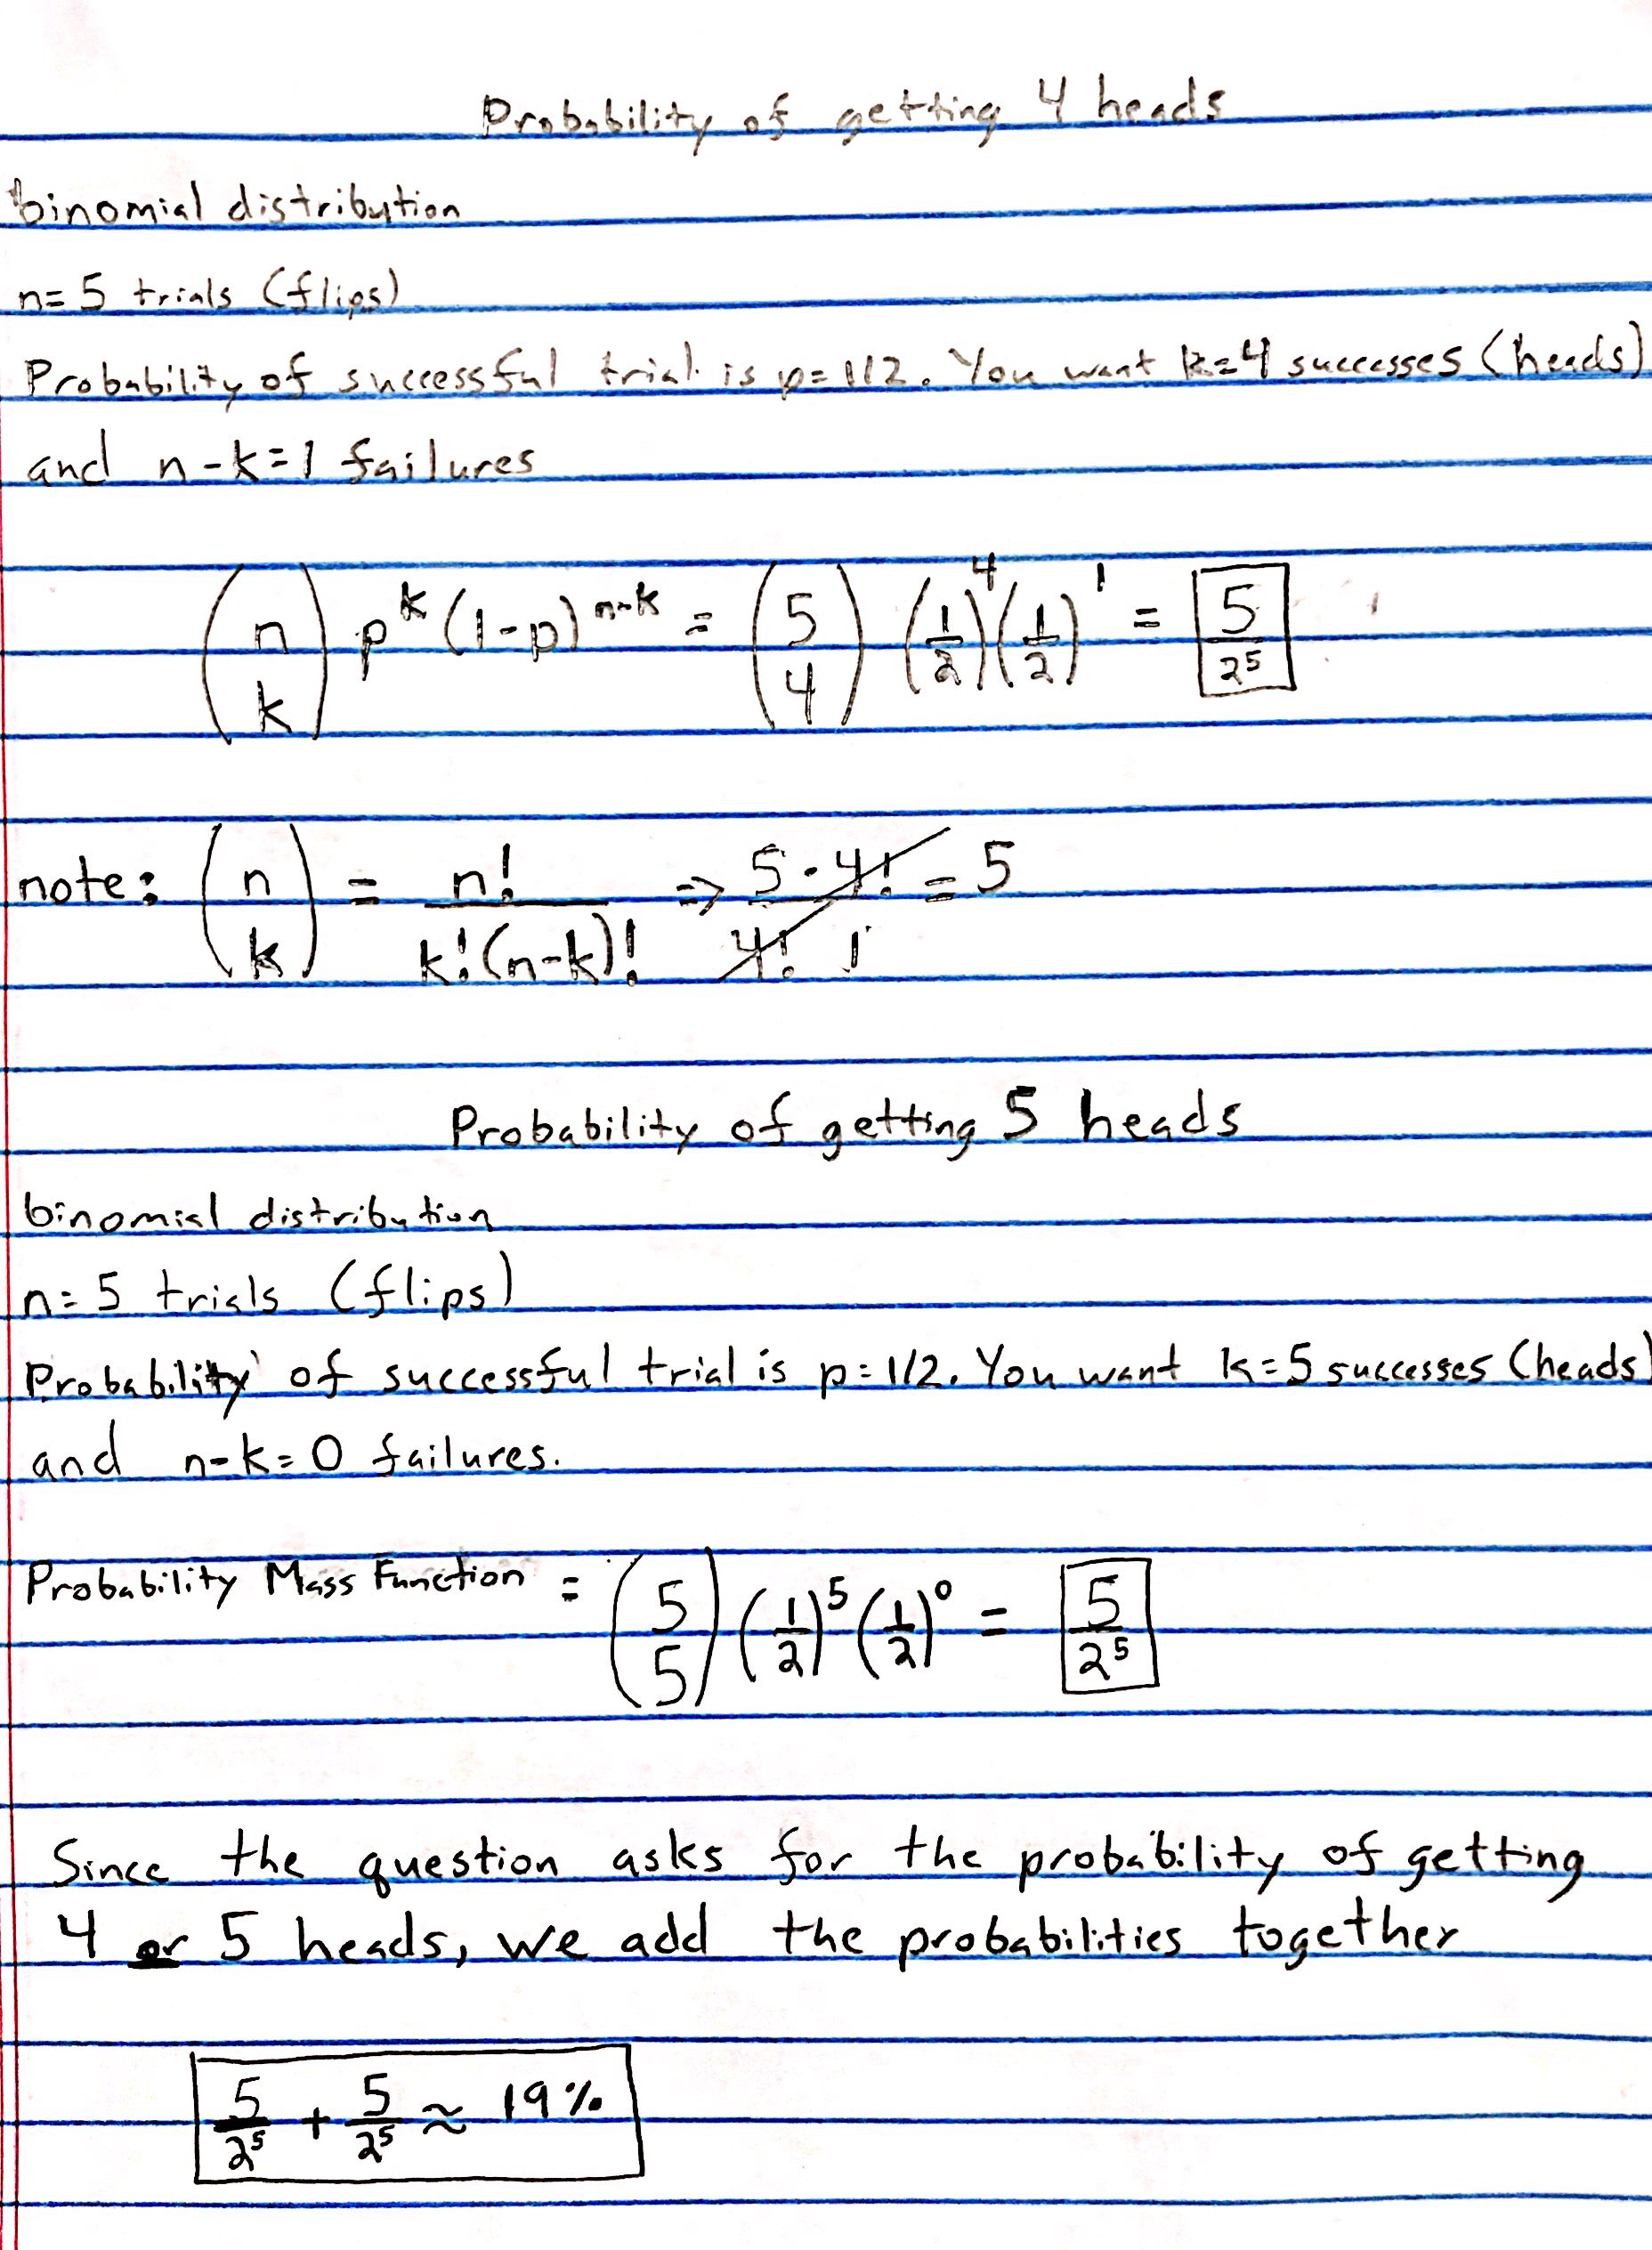 Probability of getting 4 heads
binomial distribution
n=5 trials (flips)
Probability of successful trial is p=1/2. You want k=4 successes (heads)
and n-k=1 failures
(n k) p^k (1-p)^n-k = (5 4) (1/2)^4 (1/2)^1 = 5/2^5
note: (n k) = n!/k!(n-k)! => 5·4!/4! 1 = 5
Probability of getting 5 heads
binomial distribution
n=5 trials (flips)
Probability of successful trial is p=1/2. You want k=5 successes (heads)
and n-k=0 failures.
Probability Mass Function = (5 5) (1/2)^5 (1/2)^0 = 5/2^5
Since the question asks for the probability of getting
4 or 5 heads, we add the probabilities together
5/2^5 + 5/2^5 ≈ 19%